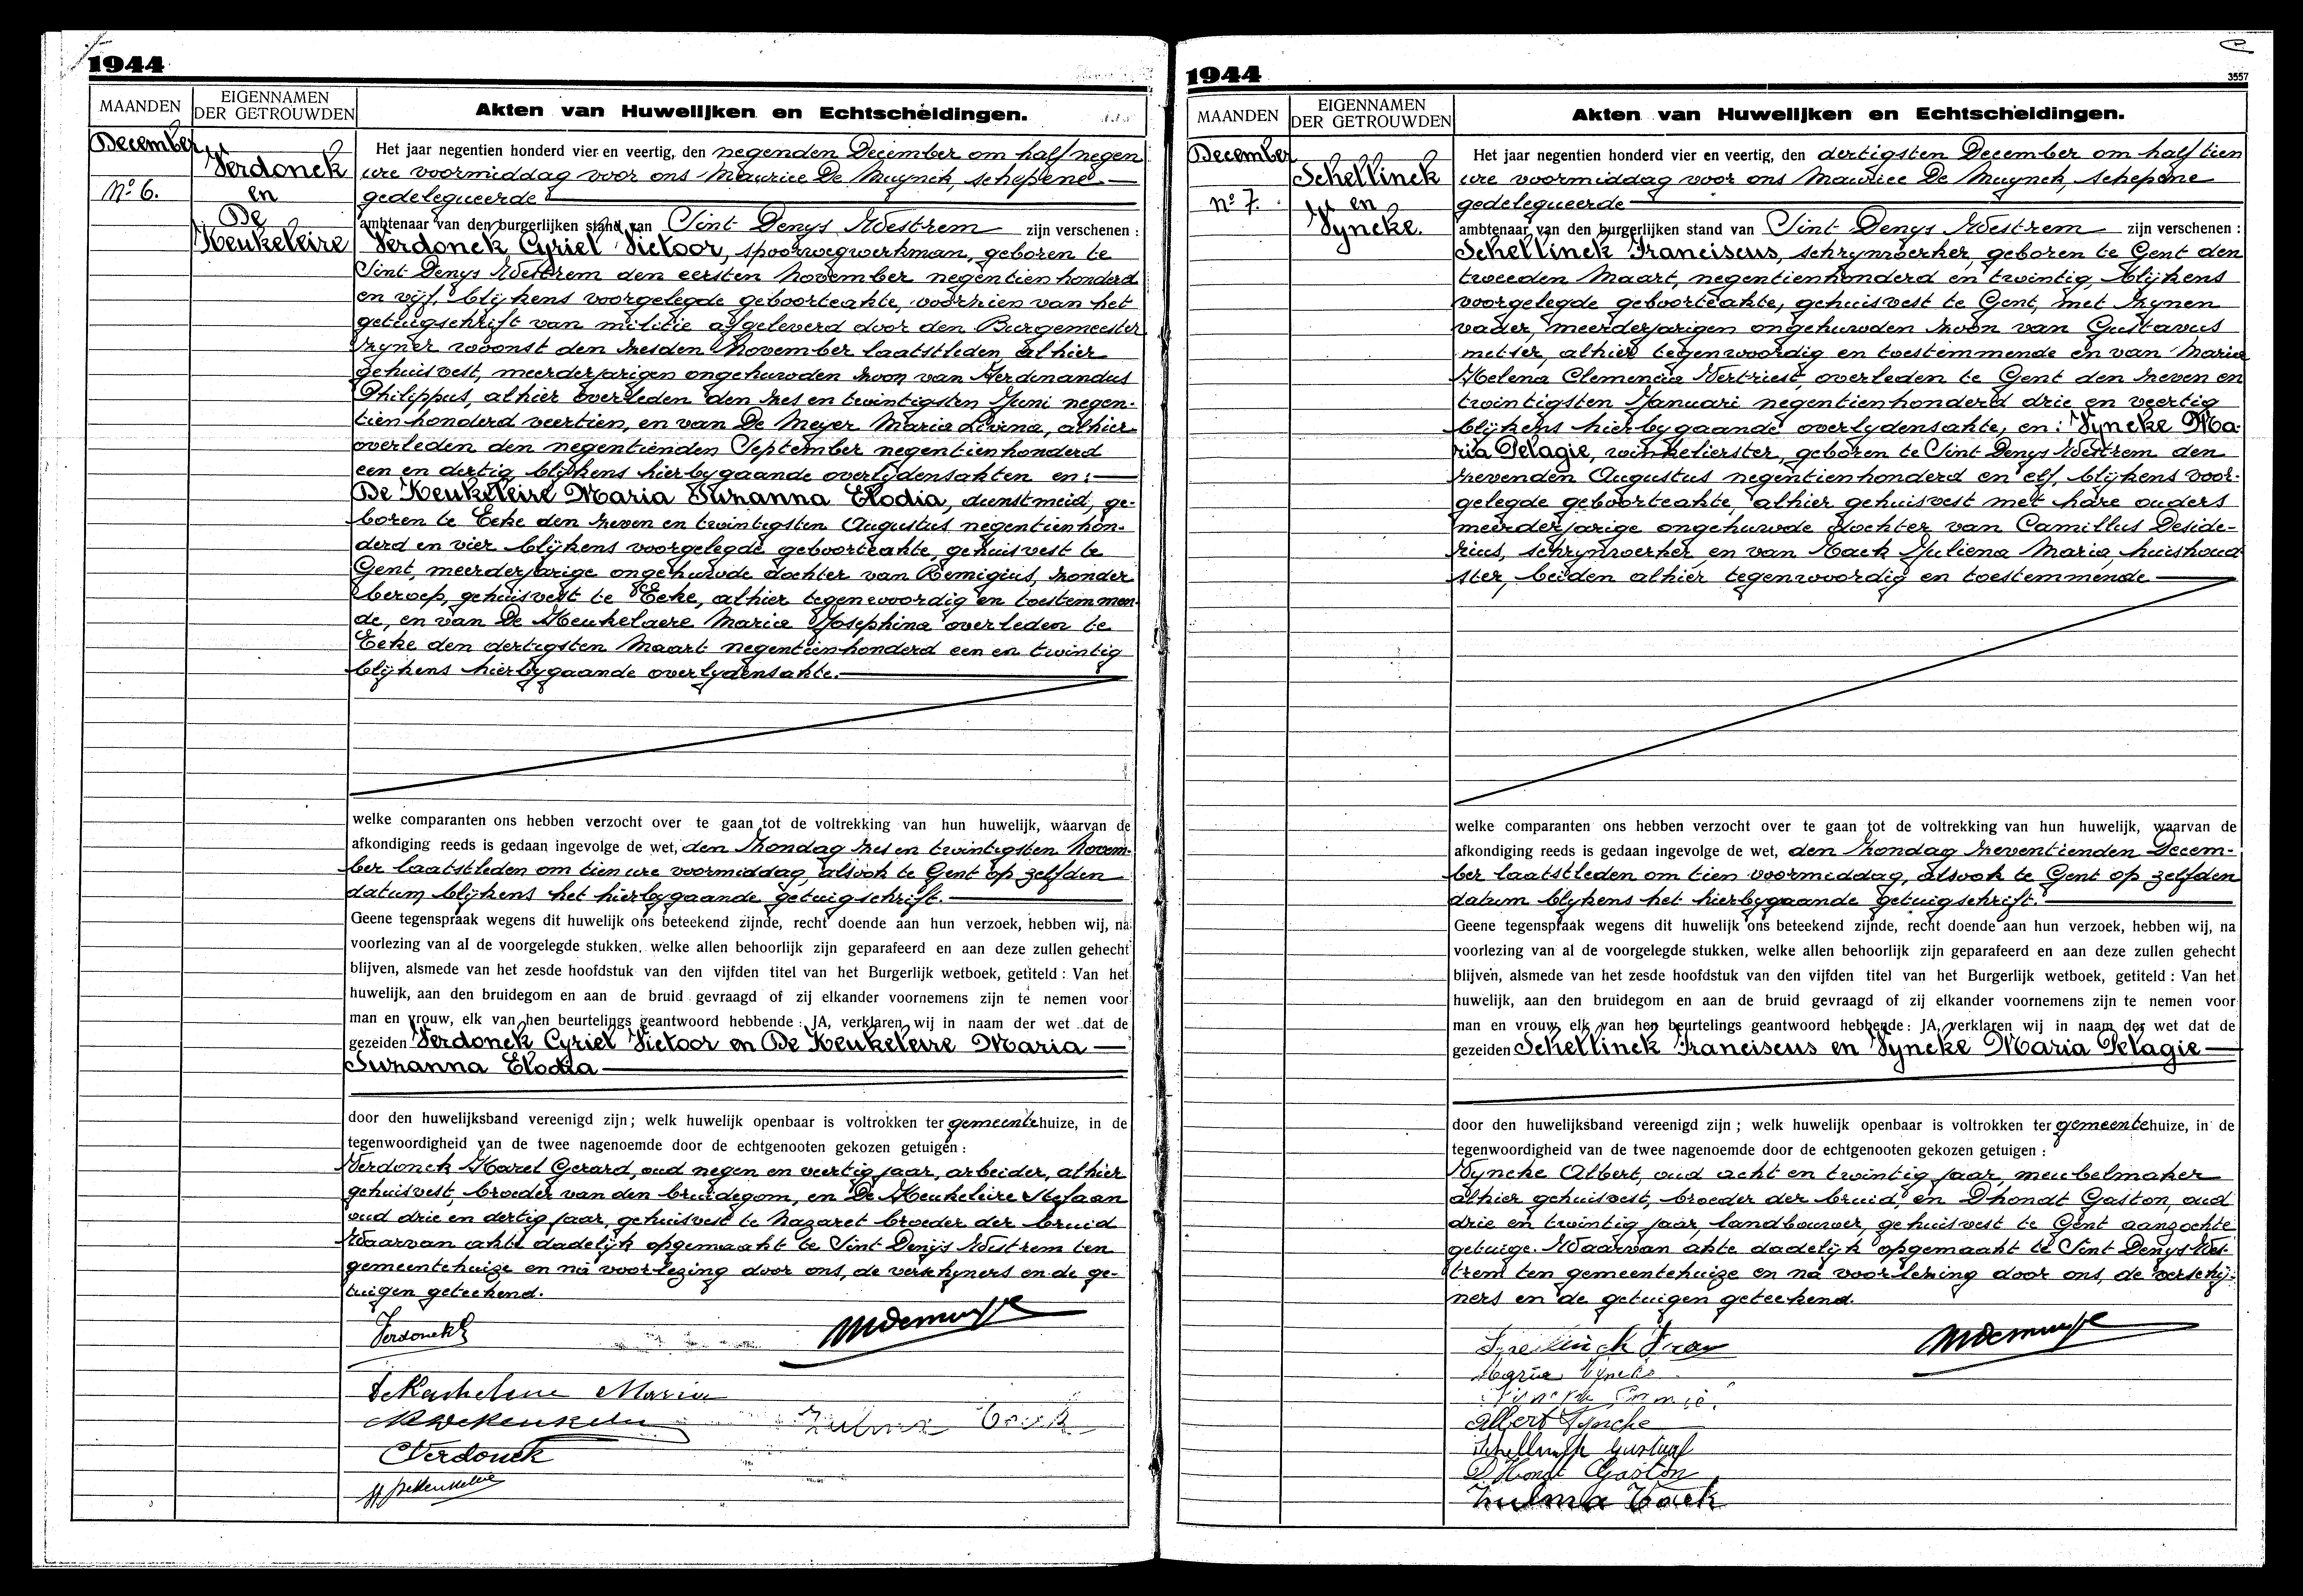 1944
MAANDEN
EIGENNAMEN
DER GETROUWDEN
Akten van Huwelijken en Echtscheidingen.
December
No 6.
Verdonck
en
De
Keukeleire
Het jaar negentien honderd vier en veertig, den negenden December om half negen
ure voormiddag voor ons Maurice De Muynck, schepene
gedelegueerde
ambtenaar van den burgerlijken stand van Sint Denys Westrem zijn verschenen :
Verdonck Cyriel Victoor, spoorwegwerkman, geboren te
Sint Denys Westrem den eersten November negentienhonderd
en vijf, blijkens voorgelegde geboorteakte, voorzien van het
getuigschrift van militie afgeleverd door den Burgemeester
zyner woonst den zesden November laatstleden, alhier
gehuisvest, meerderjarigen ongehuwden zoon van Ferdinandus
Philippus, alhier overleden den zes en twintigsten Juni negen-
tienhonderd veertien, en van De Meyer Maria Livina, alhier
overleden den negentienden September negentienhonderd
een en dertig blijkens hierbygaande overlijdensakten en :
De Keukeleire Maria Suzanna Elodia, dienstmeid, ge-
boren te Eeke den zeven en twintigsten Augustus negentienhon-
derd en vier blijkens voorgelegde geboorteakte, gehuisvest te
Gent, meerderjarige ongehuwde dochter van Remigius, zonder
beroep, gehuisvest te Eeke, alhier tegenwoordig en toestemmen-
de, en van De Keukelaere Maria Josephina overleden te
Eeke den dertigsten Maart negentienhonderd een en twintig
blijkens hierbygaande overlydensakte.
welke comparanten ons hebben verzocht over te gaan tot de voltrekking van hun huwelijk, waarvan de
afkondiging reeds is gedaan ingevolge de wet, den Zondag zes en twintigsten Novem-
ber laatstleden om tien ure voormiddag, alsook te Gent op zelfden
datum blijkens het hierbygaande getuigschrift.
Geene tegenspraak wegens dit huwelijk ons beteekend zijnde, recht doende aan hun verzoek, hebben wij, na
voorlezing van al de voorgelegde stukken, welke allen behoorlijk zijn geparafeerd en aan deze zullen gehecht
blijven, alsmede van het zesde hoofdstuk van den vijfden titel van het Burgerlijk wetboek, getiteld : Van het
huwelijk, aan den bruidegom en aan de bruid gevraagd of zij elkander voornemens zijn te nemen voor
man en vrouw, elk van hen beurtelings geantwoord hebbende : JA, verklaren wij in naam der wet dat de
gezeiden Verdonck Cyriel Victoor en De Keukeleire Maria
Suzanna Elodia
door den huwelijksband vereenigd zijn ; welk huwelijk openbaar is voltrokken ter gemeentehuize, in de
tegenwoordigheid van de twee nagenoemde door de echtgenooten gekozen getuigen :
Verdonck Karel Gerard, oud negen en veertig jaar, arbeider, alhier
gehuisvest, broeder van den bruidegom, en De Keukeleire Stefaan
oud drie en dertig jaar, gehuisvest te Nazaret broeder der bruid
Waarvan akte dadelijk opgemaakt te Sint Denijs Westrem ten
gemeentehuize en na voorlezing door ons, de verschyners en de ge-
tuigen geteekend.
Verdonck
Maria
Verdonck
Zulma Cack
1944
3557
MAANDEN
EIGENNAMEN
DER GETROUWDEN
Akten van Huwelijken en Echtscheidingen.
December
No 7.
Schellinck
en
Vyncke.
Het jaar negentien honderd vier en veertig, den dertigsten December om half tien
ure voormiddag voor ons Maurice De Muynck, schepene
gedelegueerde
ambtenaar van den burgerlijken stand van Sint Denys Westrem zijn verschenen :
Schellinck Franciscus, schrynwerker, geboren te Gent den
tweeden Maart, negentienhonderd en twintig, blijkens
voorgelegde geboorteakte, gehuisvest te Gent, met zynen
vader, meerderjarigen ongehuwden zoon van Gustavus
metser, alhier tegenwoordig en toestemmende en van Maria
Helena Clemencia Vertriest, overleden te Gent den zeven en
twintigsten Januari negentienhonderd drie en veertig
blijkens hierbygaande overlydensakte, en : Vyncke Ma-
ria Pelagie, winkelierster, geboren te Sint Denys Westrem den
zevenden Augustus negentienhonderd en elf, blijkens voor-
gelegde geboorteakte, alhier gehuisvest met hare ouders
meerderjarige ongehuwde dochter van Camillus Deside-
rius, schrynwerker, en van Kack Juliena Maria, huishoud-
ster, beiden alhier tegenwoordig en toestemmende
welke comparanten ons hebben verzocht over te gaan tot de voltrekking van hun huwelijk, waarvan de
afkondiging reeds is gedaan ingevolge de wet, den Zondag zeventienden Decem-
ber laatstleden om tien voormiddag, alsook te Gent op zelfden
datum blykens het hierbygaande getuigschrift.
Geene tegenspraak wegens dit huwelijk ons beteekend zijnde, recht doende aan hun verzoek, hebben wij, na
voorlezing van al de voorgelegde stukken, welke allen behoorlijk zijn geparafeerd en aan deze zullen gehecht
blijven, alsmede van het zesde hoofdstuk van den vijfden titel van het Burgerlijk wetboek, getiteld : Van het
huwelijk, aan den bruidegom en aan de bruid gevraagd of zij elkander voornemens zijn te nemen voor
man en vrouw, elk van hen beurtelings geantwoord hebbende : JA, verklaren wij in naam der wet dat de
gezeiden Schellinck Franciscus en Vyncke Maria Pelagie
door den huwelijksband vereenigd zijn ; welk huwelijk openbaar is voltrokken ter gemeentehuize, in de
tegenwoordigheid van de twee nagenoemde door de echtgenooten gekozen getuigen :
Vyncke Albert, oud acht en twintig jaar, meubelmaker
alhier gehuisvest, broeder der bruid, en Dhondt Gaston, oud
drie en twintig jaar, landbouwer, gehuisvest te Gent aanzochte
getuige. Waarvan akte dadelijk opgemaakt te Sint Denys Wes-
trem ten gemeentehuize en na voorlezing door ons, de verschij-
ners en de getuigen geteekend.
Maria Vyncke
Albert Vyncke
Schellinck Gustaaf
D'Hondt Gaston
Zulma Cack